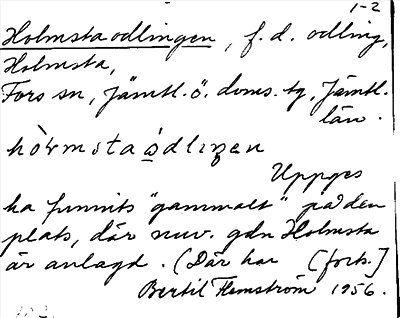 1-2
Holmstaodlingen, f.d. odling,
Holmsta,
Fors sn, Jämtl. ö. doms. tg, Jämtl.
län.
Uppges
ha funnits "gammalt" på den
plats, där nuv. gdn Holmsta
är anlagd. (Där har [forts.]
Bertil Flemström 1956.